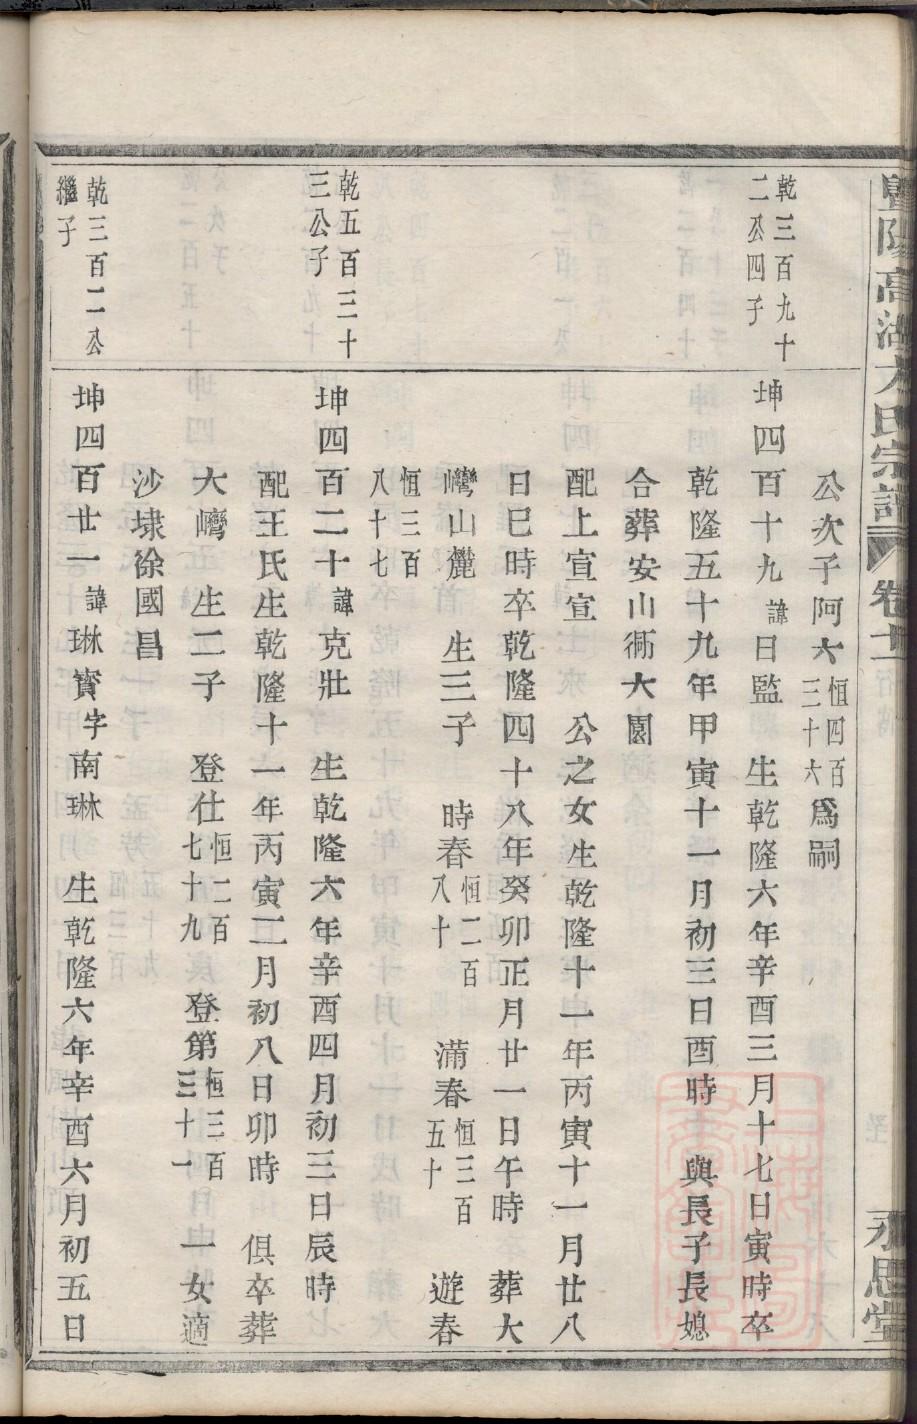 暨陽高湖方氏宗譜 卷十二 永思堂
公次子阿六恒四百三十六爲嗣
乾三百九十二公四子
坤四百十九諱日監 生乾隆六年辛酉三月十七日寅時卒
乾隆五十九年甲寅十一月初三日酉時 與長子長媳
合葬安山衕大園
配上宣宣 公之女生乾隆十一年丙寅十一月廿八
日巳時卒乾隆四十八年癸卯正月廿一日午時 葬大
㘰山麓 生三子 時春恒二百八十 滿春恒三百五十 遊春
恒三百八十七
乾五百三十三公子
坤四百二十諱克壯 生乾隆六年辛酉四月初三日辰時
配王氏生乾隆十一年丙寅二月初八日卯時 俱卒葬
大㘰 生二子 登仕恒二百七十九 登第恒三百三十一 一女適
沙埭徐國昌
乾三百二公繼子
坤四百廿一諱琳寳字南琳 生乾隆六年辛酉六月初五日